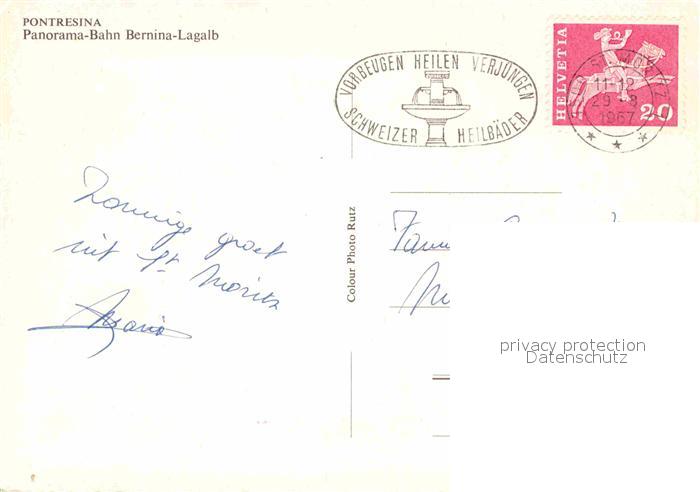 PONTRESINA
Panorama-Bahn Bernina-Lagalb
VORBEUGEN HEILEN VERJÜNGEN
SCHWEIZER HEILBÄDER
HELVETIA
20
ST. MORITZ
11-12
29-8
1967
Zonnige groet
uit St. Moritz
Colour Photo Rutz
Fam
privacy protection
Datenschutz